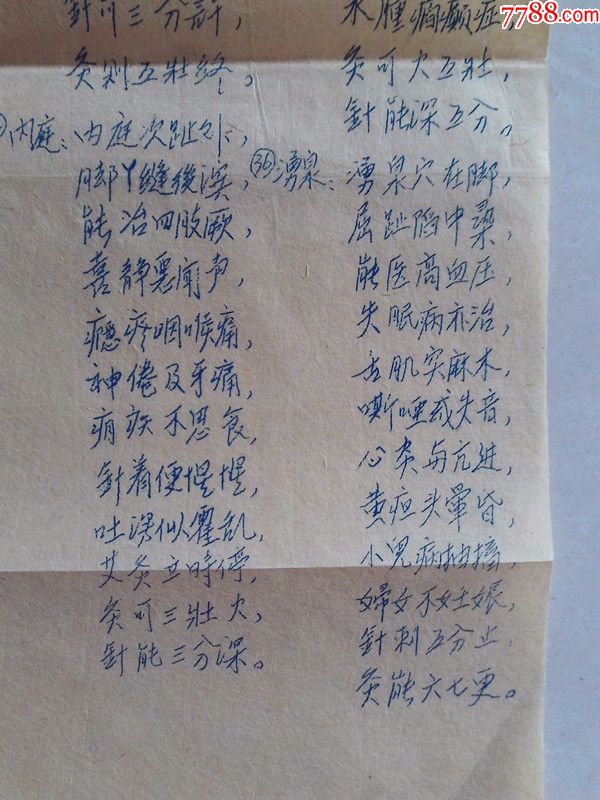 7788.com
針可三分許,
灸則五壯終。
内庭:内庭次趾外,
脚丫縫後濱,
能治四肢厥,
喜静惡聞声,
癮疹咽喉痛,
神倦及牙痛,
痢疾不思食,
針着便惺惺,
吐瀉似霍乱,
艾灸立時停,
灸可三壯火,
針能三分深。
水腫痾癲症,
灸可火五壯,
針能深五分。
㊱湧泉:湧泉穴在脚,
屈趾陷中桑,
能医高血压,
失眠病亦治,
舌肌突麻木,
嘶哑或失音,
心炎与亢进,
黄疸头暈昏,
小兒病抽搐,
婦女不妊娠,
針刺五分止,
灸能六七更。